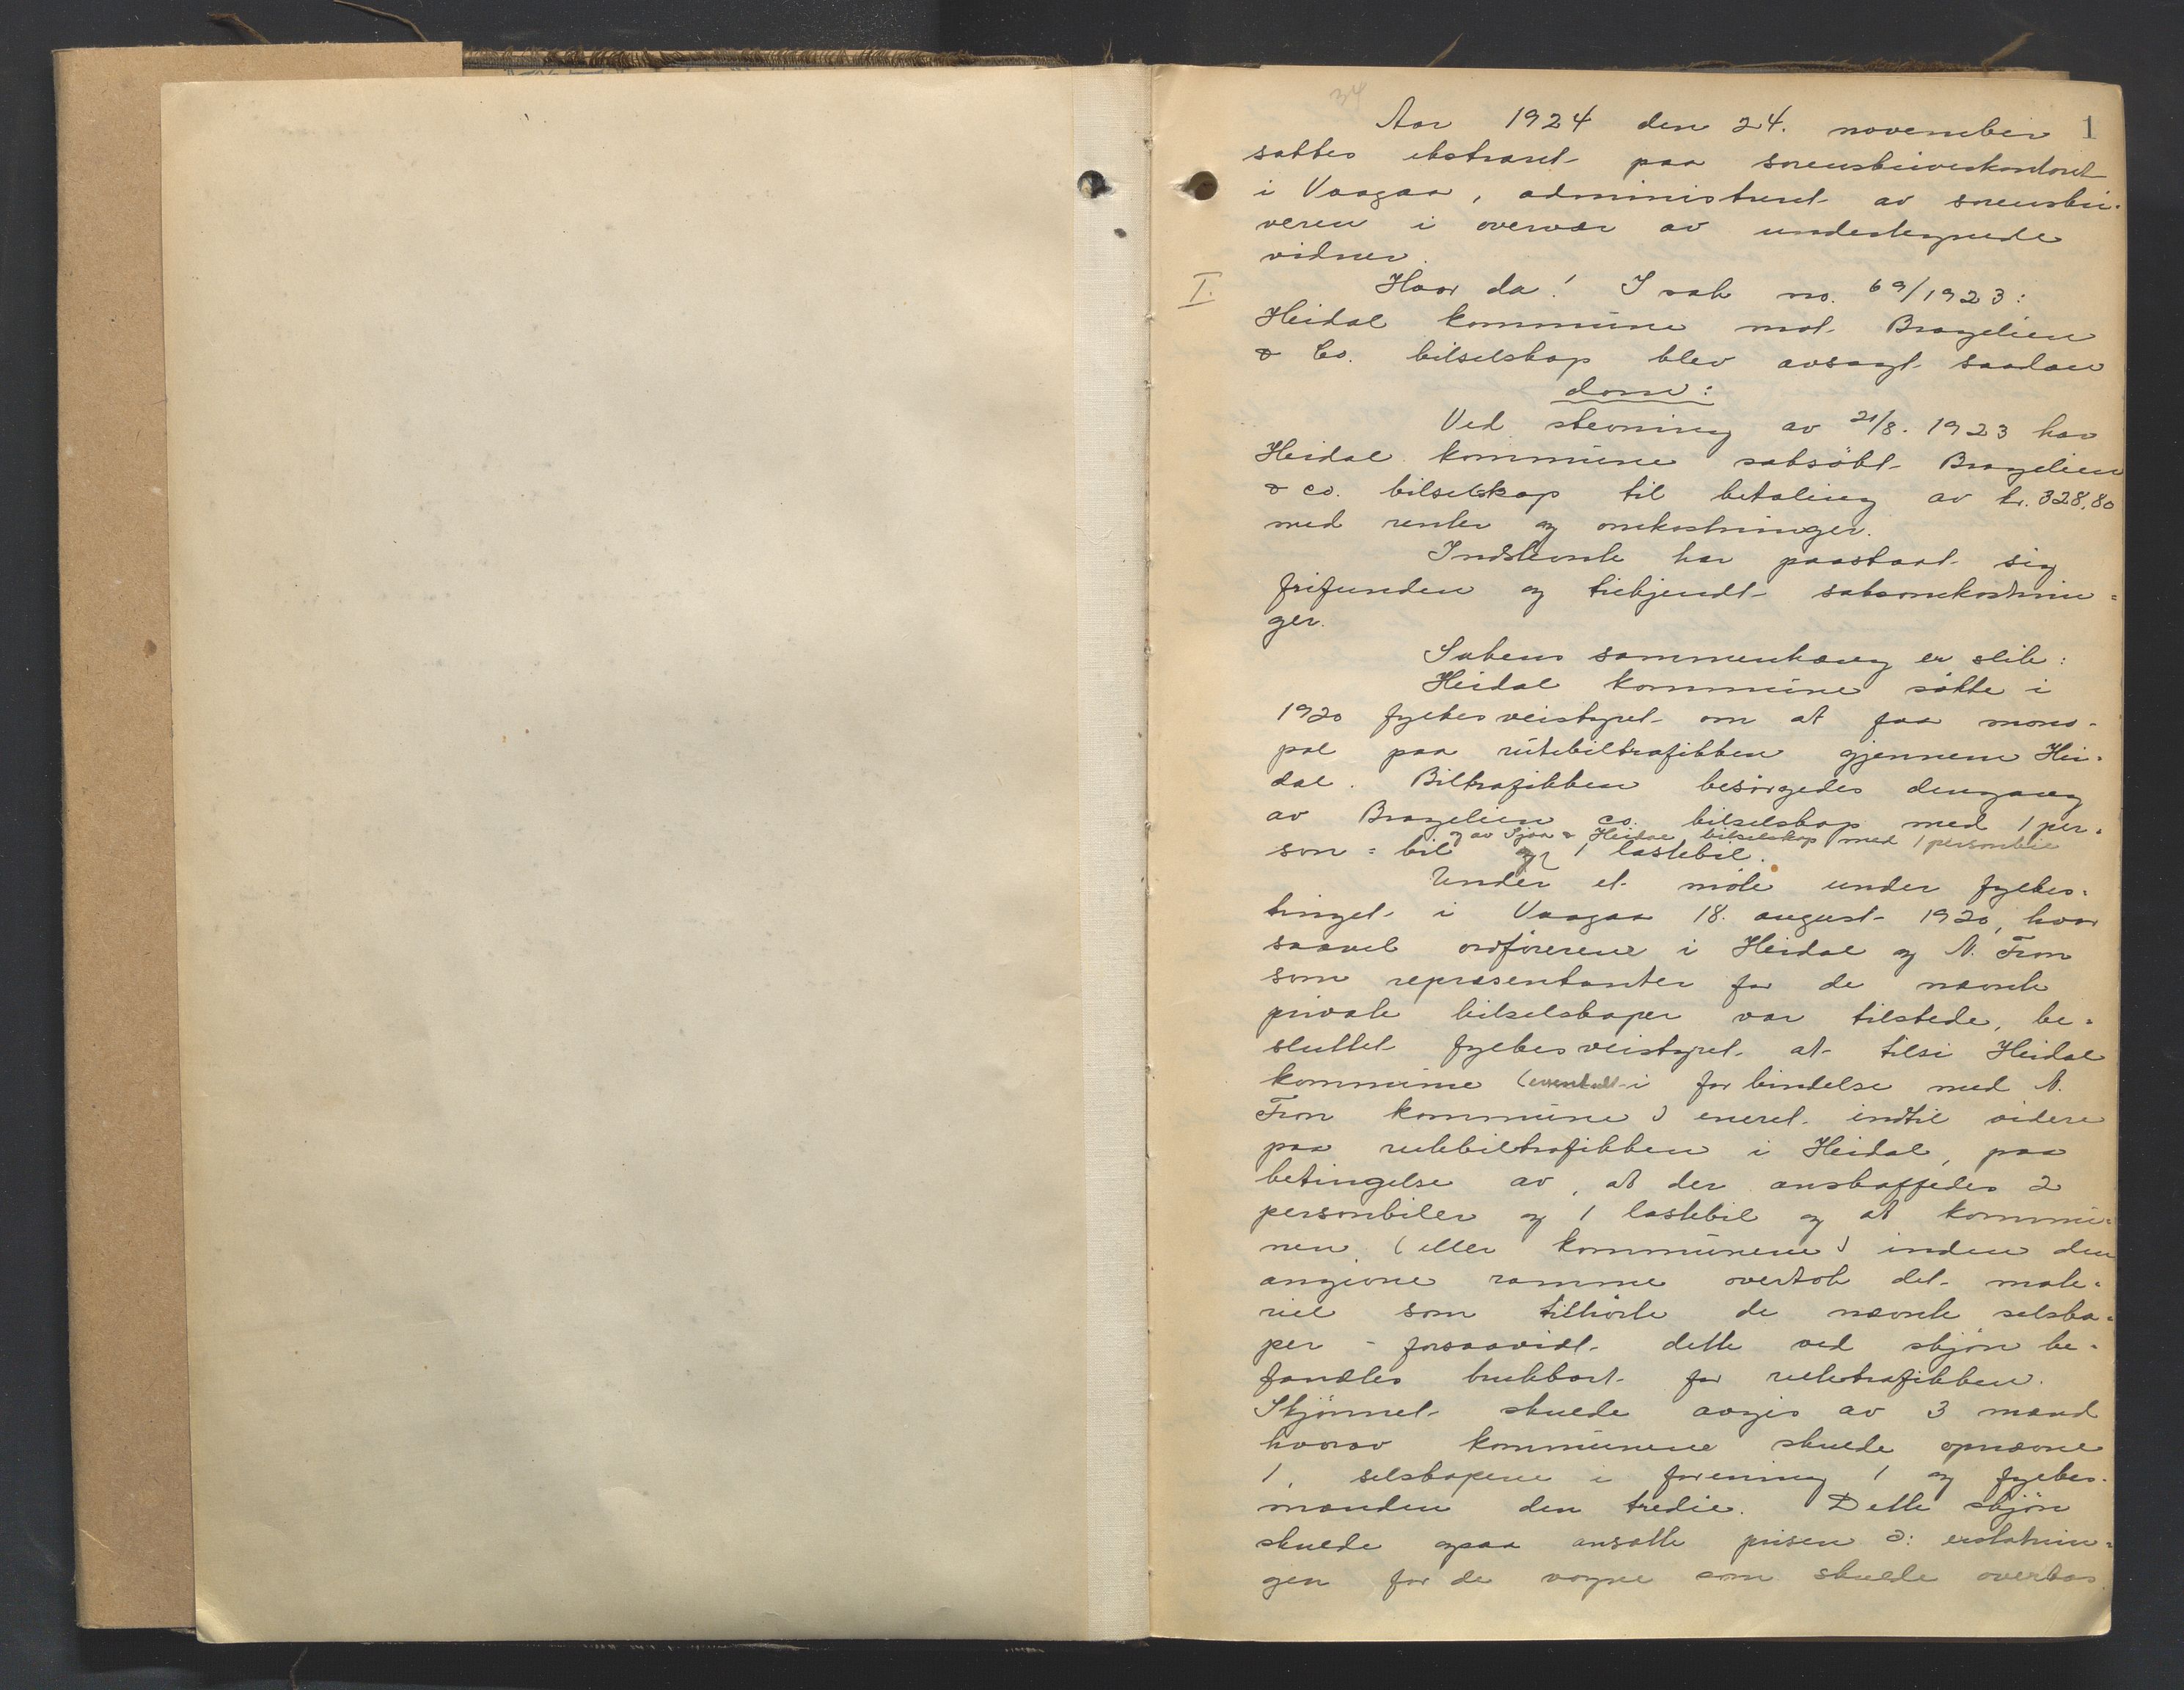 34
1
Aar 1924 den 24. november
sattes ekstraret paa sorenskriverkontoret
i Vaagaa, administreret av sorenskri-
veren i overvær av undertegnede
vidner.
I.
Hvor da! I sak no. 69/1923:
Heidal kommune mot Bragelien
& Co. bilselskap blev avsagt saadan
dom:
Ved stevning av 21/8. 1923 har
Heidal kommune saksökt Bragelien
& co. bilselskap til betaling av kr. 328,80
med renter og omkostninger.
Indstevnte har paastaat sig
frifunden og tilkjendt saksomkostnin=
ger.
Sakens sammenhæng er slik:
Heidal kommune søkte i
1920 fylkesveistyret om at faa mono-
pol paa rutebiltrafikken gjennem Hei-
dal. Biltrafikken besörgedes dengang
av Bragelien co. bilselskap med 1 per-
og av Sjoa & Heidal bilselskap med 1 personbil
son = bil og 1 lastebil.
Under et möte under fylkes-
tinget i Vaagaa 18. august 1920, hvor
saavel ordförerene i Heidal og N. Fron
som repræsentanter for de nævnte
private bilselskaper var tilstede, be-
sluttet fylkesveistyret at tilsi Heidal
kommune (eventuelt i forbindelse med N.
Fron kommune) eneret indtil videre
paa rutebiltrafikken i Heidal, paa
betingelse av, at der anskaffedes 2
personbiler og 1 lastebil og at kommu-
nen (eller kommunene) inden den
angivne ramme overtok det mate-
riel som tilhörte de nævnte selska-
per - forsaavidt dette ved skjön be-
fandtes brukbart for rutetrafikken.
Skjönnet skulde avgis av 3 mænd
hvorav kommunene skulde opnævne
1, selskapene i forening 1 og fylkes-
manden den tredie. Dette skjön
skulde ogsaa ansætte prisen ɔ: erstatnin-
gen for de vogne som skulde overtas